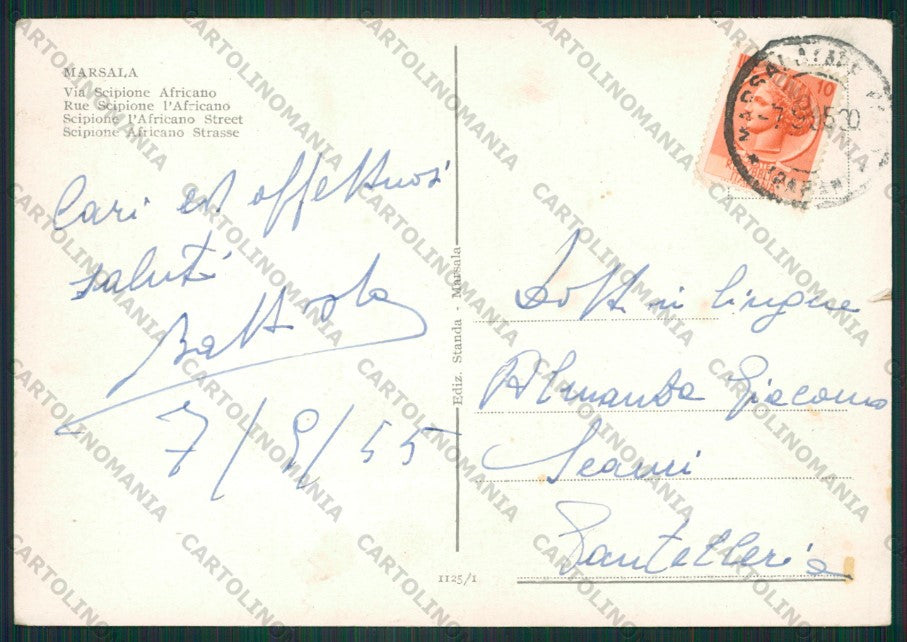 MARSALA
Via Scipione Africano
Rue Scipione l'Africano
Scipione l'Africano Street
Scipione Africano Strasse
Cari ed affettuosi
saluti
7/9/55
Ediz. Standa - Marsala
1125/1
10
MARSALA
(TRAPANI)
Dott. in lingue
Almanza Giacomo
Scauri
Pantelleria
CARTOLINOMANIA